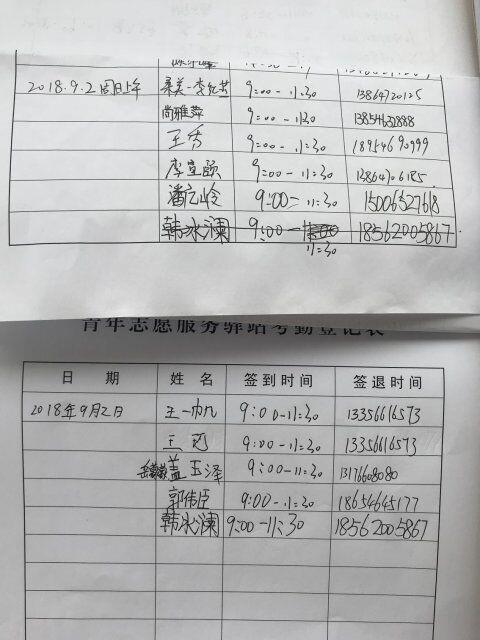 2018.9.2 周日上午 9:00-11:30 13864720125
尚雅萍 9:00-11:30 13854632888
王秀 9:00-11:30 18954690999
李宣颐 9:00-11:30
潘 岭 9:00-11:30 15006527618
韩冰澜 9:00-11:30 18562005867
青年志愿服务驿站考勤登记表
日 期 姓 名 签到时间 签退时间
2018年9月2日 王一帆 9:00-11:30 13356616573
王 9:00-11:30 13356616573
盖玉泽 9:00-11:30 13176608080
郭伟臣 9:00-11:30 18654645177
韩冰澜 9:00-11:30 18562005867